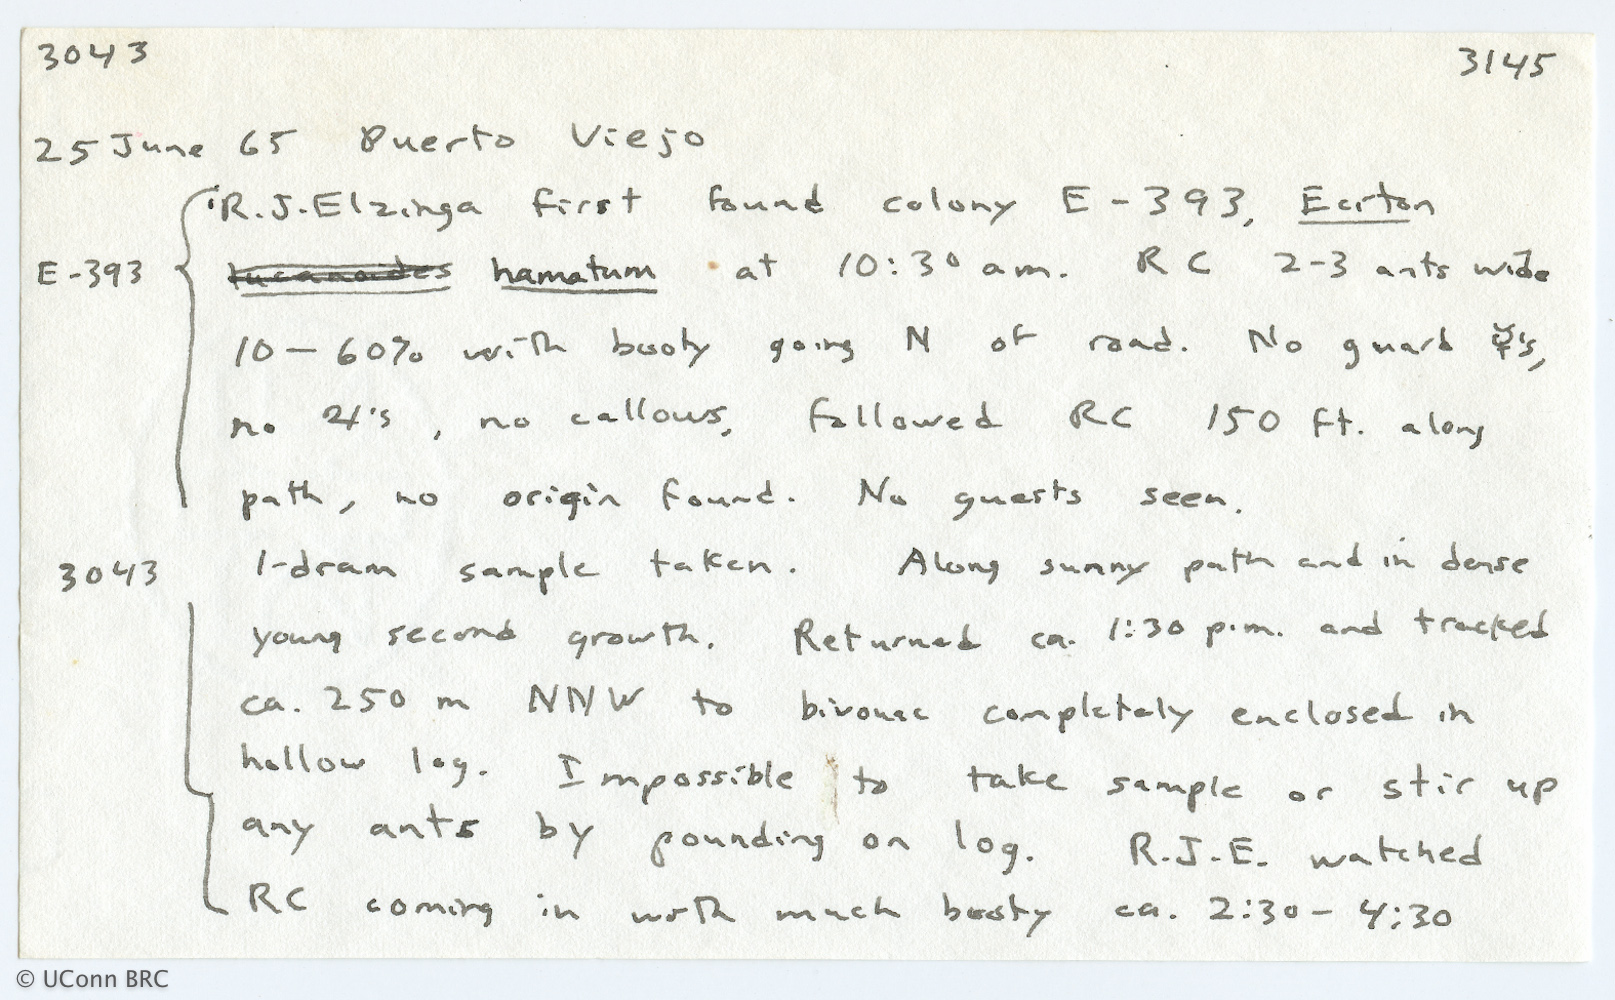 3043 3145
25 June 65 Puerto Viejo
R.J. Elzinga first found colony E-393, Eciton
E-393 lucanoides hamatum at 10:30 am. RC 2-3 ants wide
10-60% with booty going N of road. No guard ☿'s,
no ♃'s, no callows, followed RC 150 ft. along
path, no origin found. No guests seen.
3043 1-dram sample taken. Along sunny path and in dense
young second growth. Returned ca. 1:30 p.m. and tracked
ca. 250 m NNW to bivouac completely enclosed in
hollow log. Impossible to take sample or stir up
any ants by pounding on log. R.J.E. watched
RC coming in with much booty ca. 2:30-4:30
© UConn BRC